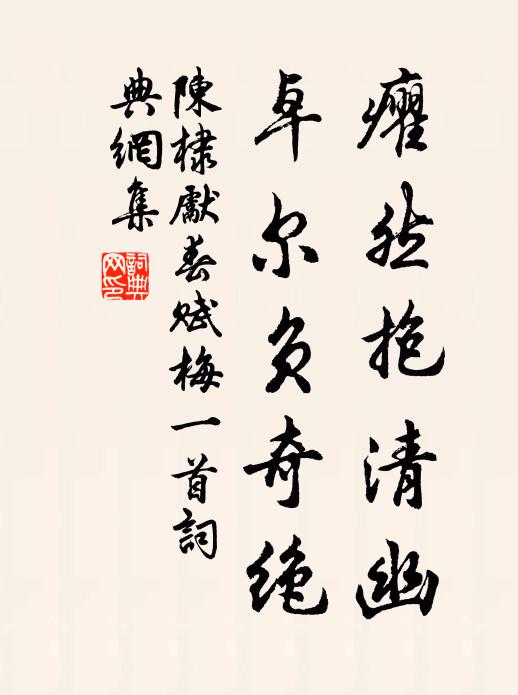 癯然抱清幽
卓尔负奇绝
陳棣獻春赋梅一首詞
典網集
詞典網印